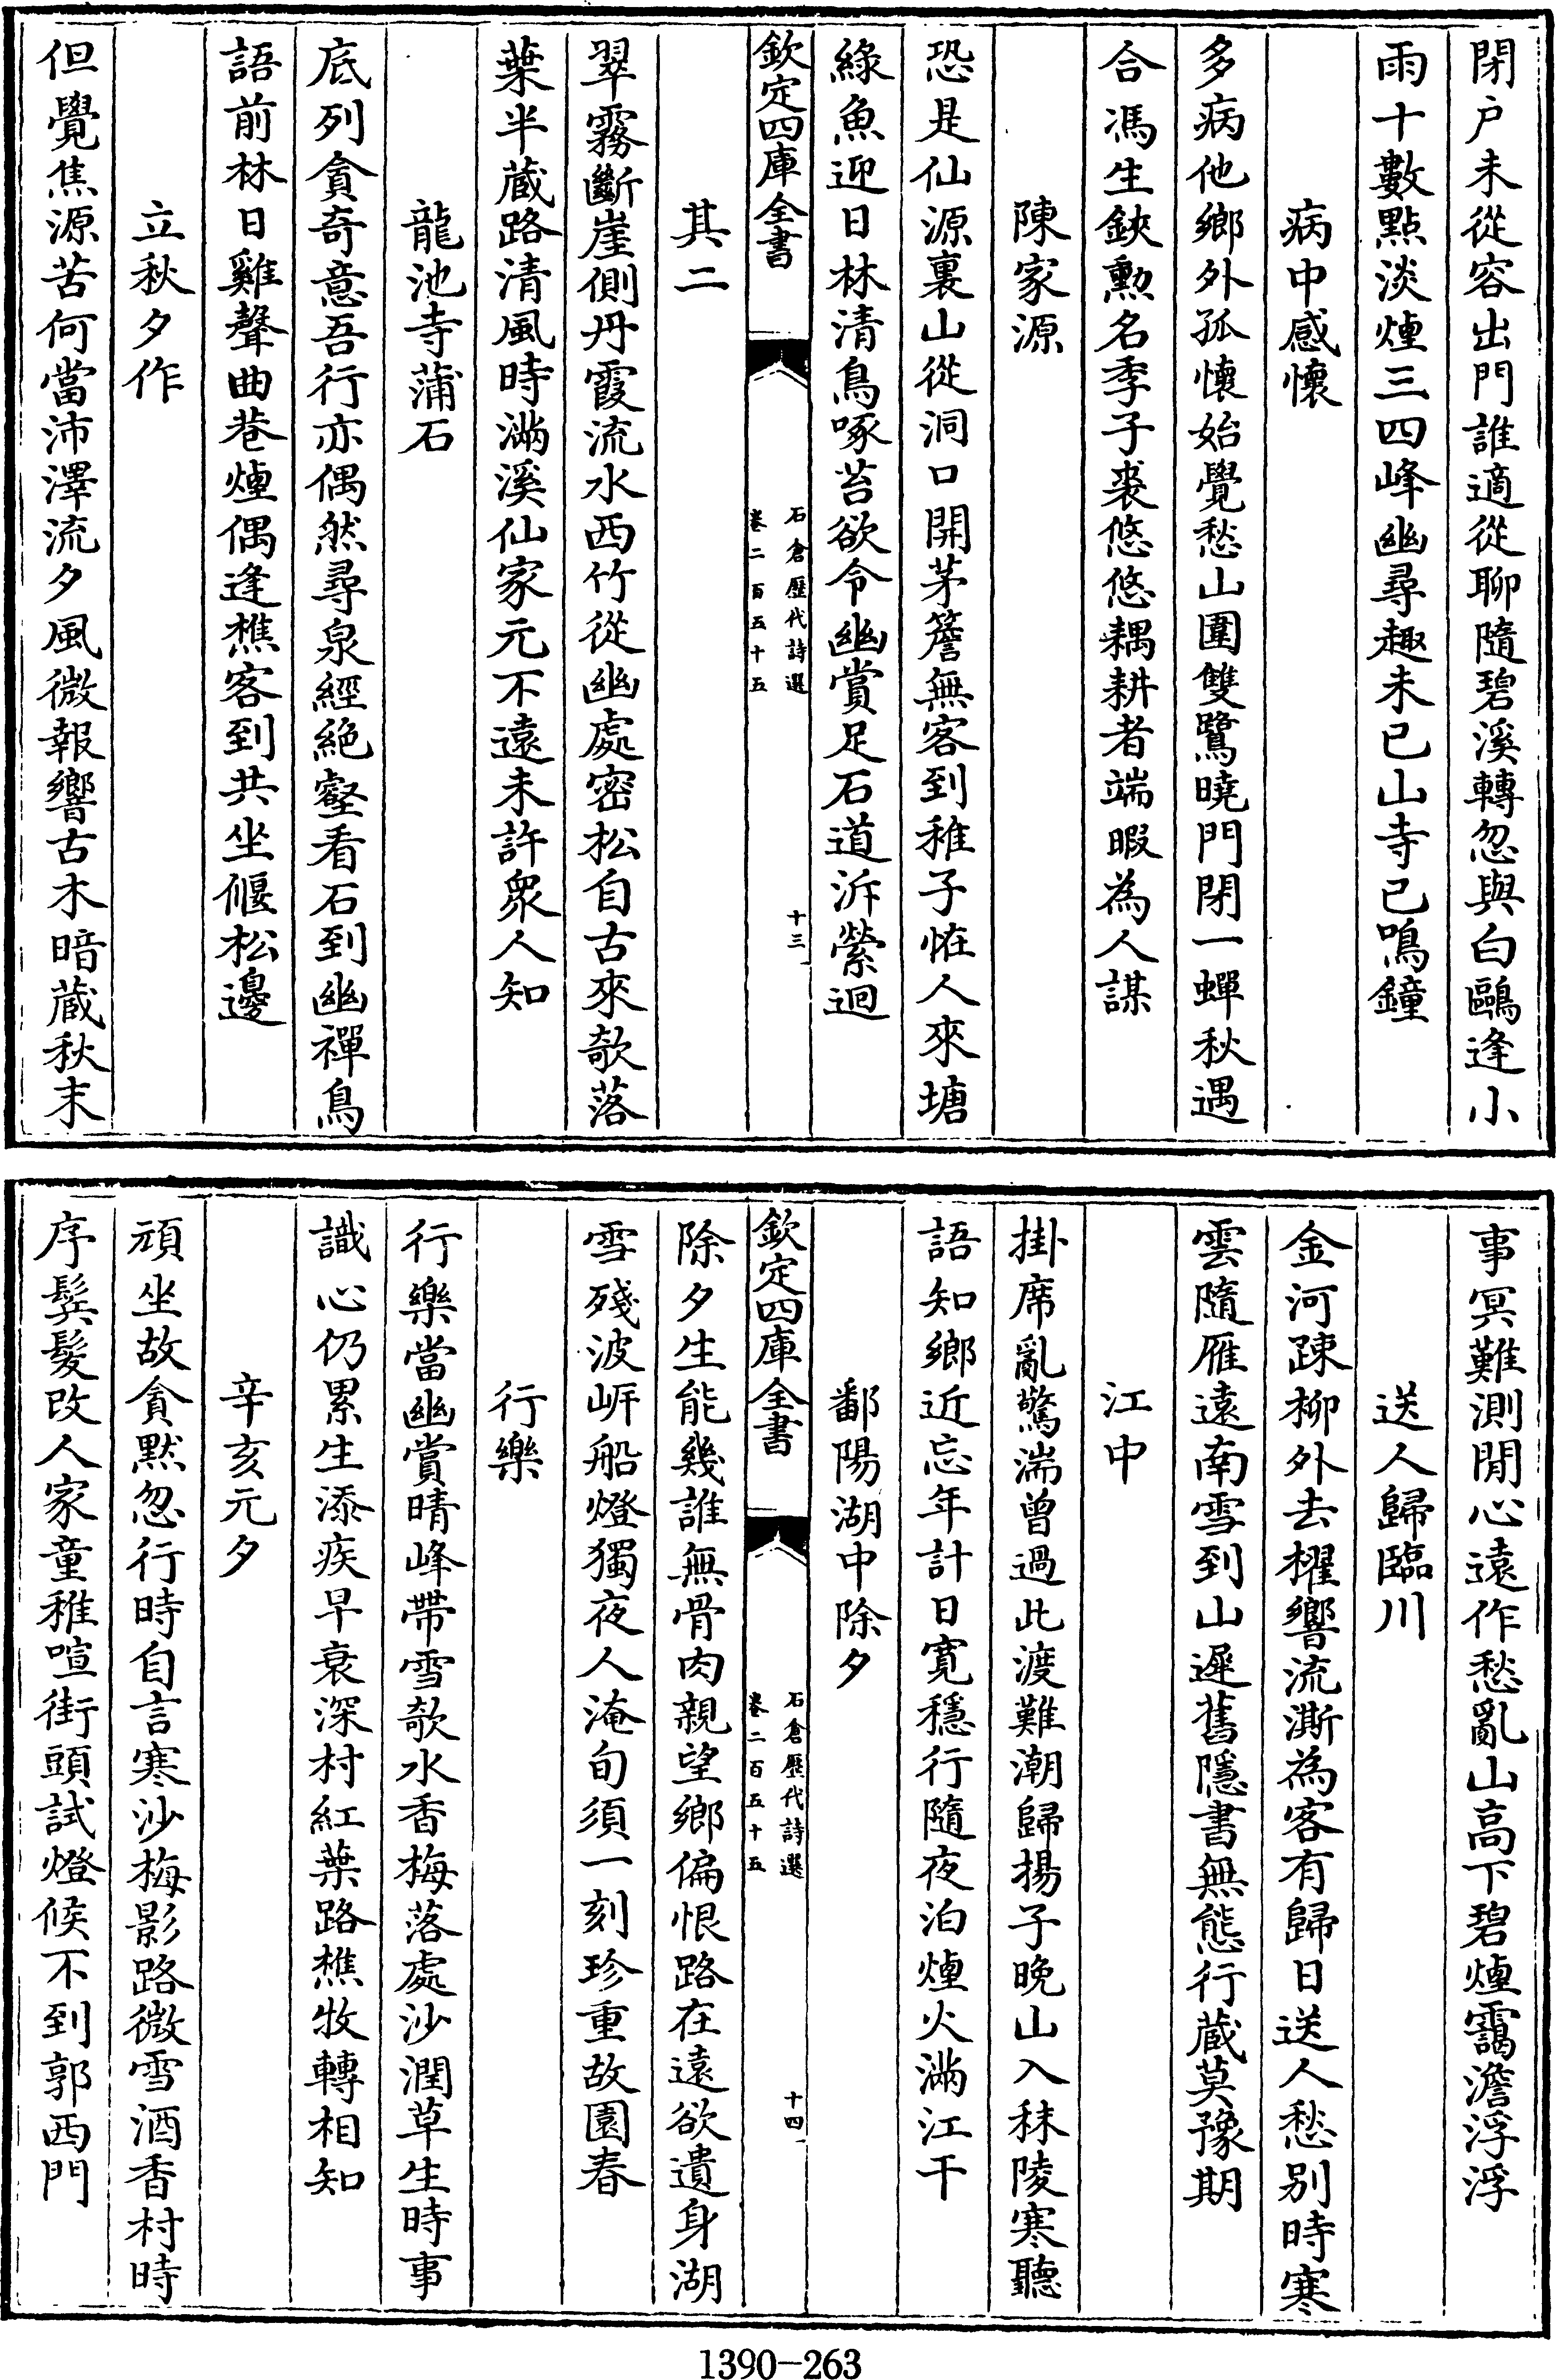 閉户未從容出門誰適從聊隨碧溪轉忽與白鷗逢小
雨十數點淡煙三四峰幽尋趣未已山寺已鳴鐘
病中感懷
多病他鄉外孤懷始覺愁山圍雙鷺曉門閉一蟬秋遇
合馮生鋏勲名季子裘悠悠耦耕者端暇為人謀
陳家源
恐是仙源裏山從洞口開茅簷無客到稚子恠人來塘
綠魚迎日林清鳥啄苔欲令幽賞足石道泝縈迴
欽定四庫全書
石倉歷代詩選
卷二百五十五
十三
其二
翠霧斷崖側丹霞流水西竹從幽處密松自古來欹落
葉半蔵路清風時滿溪仙家元不遠未許衆人知
龍池寺蒲石
底列貪奇意吾行亦偶然尋泉經絶壑看石到幽禪鳥
語前林日雞聲曲巷煙偶逢樵客到共坐偃松邊
立秋夕作
但覺焦源苦何當沛澤流夕風微報響古木暗蔵秋末
事冥難測閒心遠作愁亂山高下碧煙靄澹浮浮
送人歸臨川
金河踈柳外去櫂響流澌為客有歸日送人愁别時寒
雲隨雁遠南雪到山遲舊隱書無態行蔵莫豫期
江中
掛席亂驚湍曾過此渡難潮歸揚子晚山入秣陵寒聽
語知鄉近忘年計日寛穩行隨夜泊煙火滿江干
鄱陽湖中除夕
欽定四庫全書
石倉歷代詩選
卷二百五十五
十四
除夕生能幾誰無骨肉親望鄉偏恨路在逺欲遺身湖
雪殘波岍船燈獨夜人淹旬須一刻珍重故園春
行樂
行樂當幽賞晴峰帶雪欹水香梅落處沙潤草生時事
識心仍累生添疾早衰深村紅葉路樵牧轉相知
辛亥元夕
頑坐故貪黙忽行時自言寒沙梅影路微雪酒香村時
序鬂髮改人家童稚喧街頭試燈候不到郭西門
1390-263